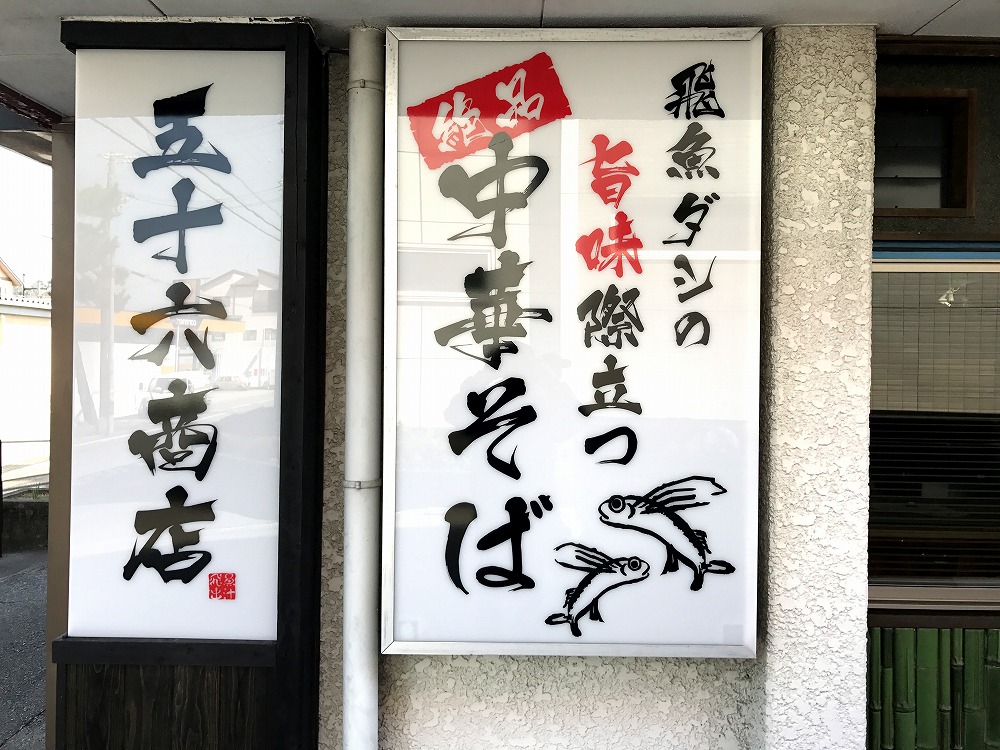 飛魚ダシの
旨味際立つ
絶品
中華そば
五十六商店